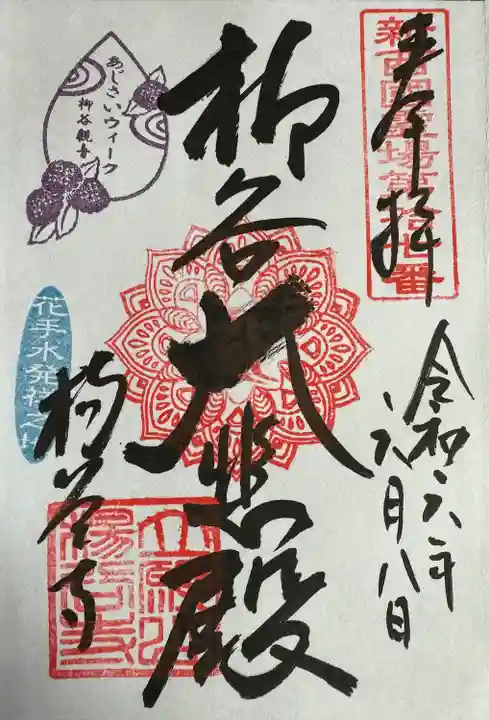 奉拝
新西国霊場第拾七番
令和六年
六月八日
柳谷
大悲殿
あじさいウィーク
柳谷観音
花手水発祥之地
楊谷寺
立願山
楊谷寺